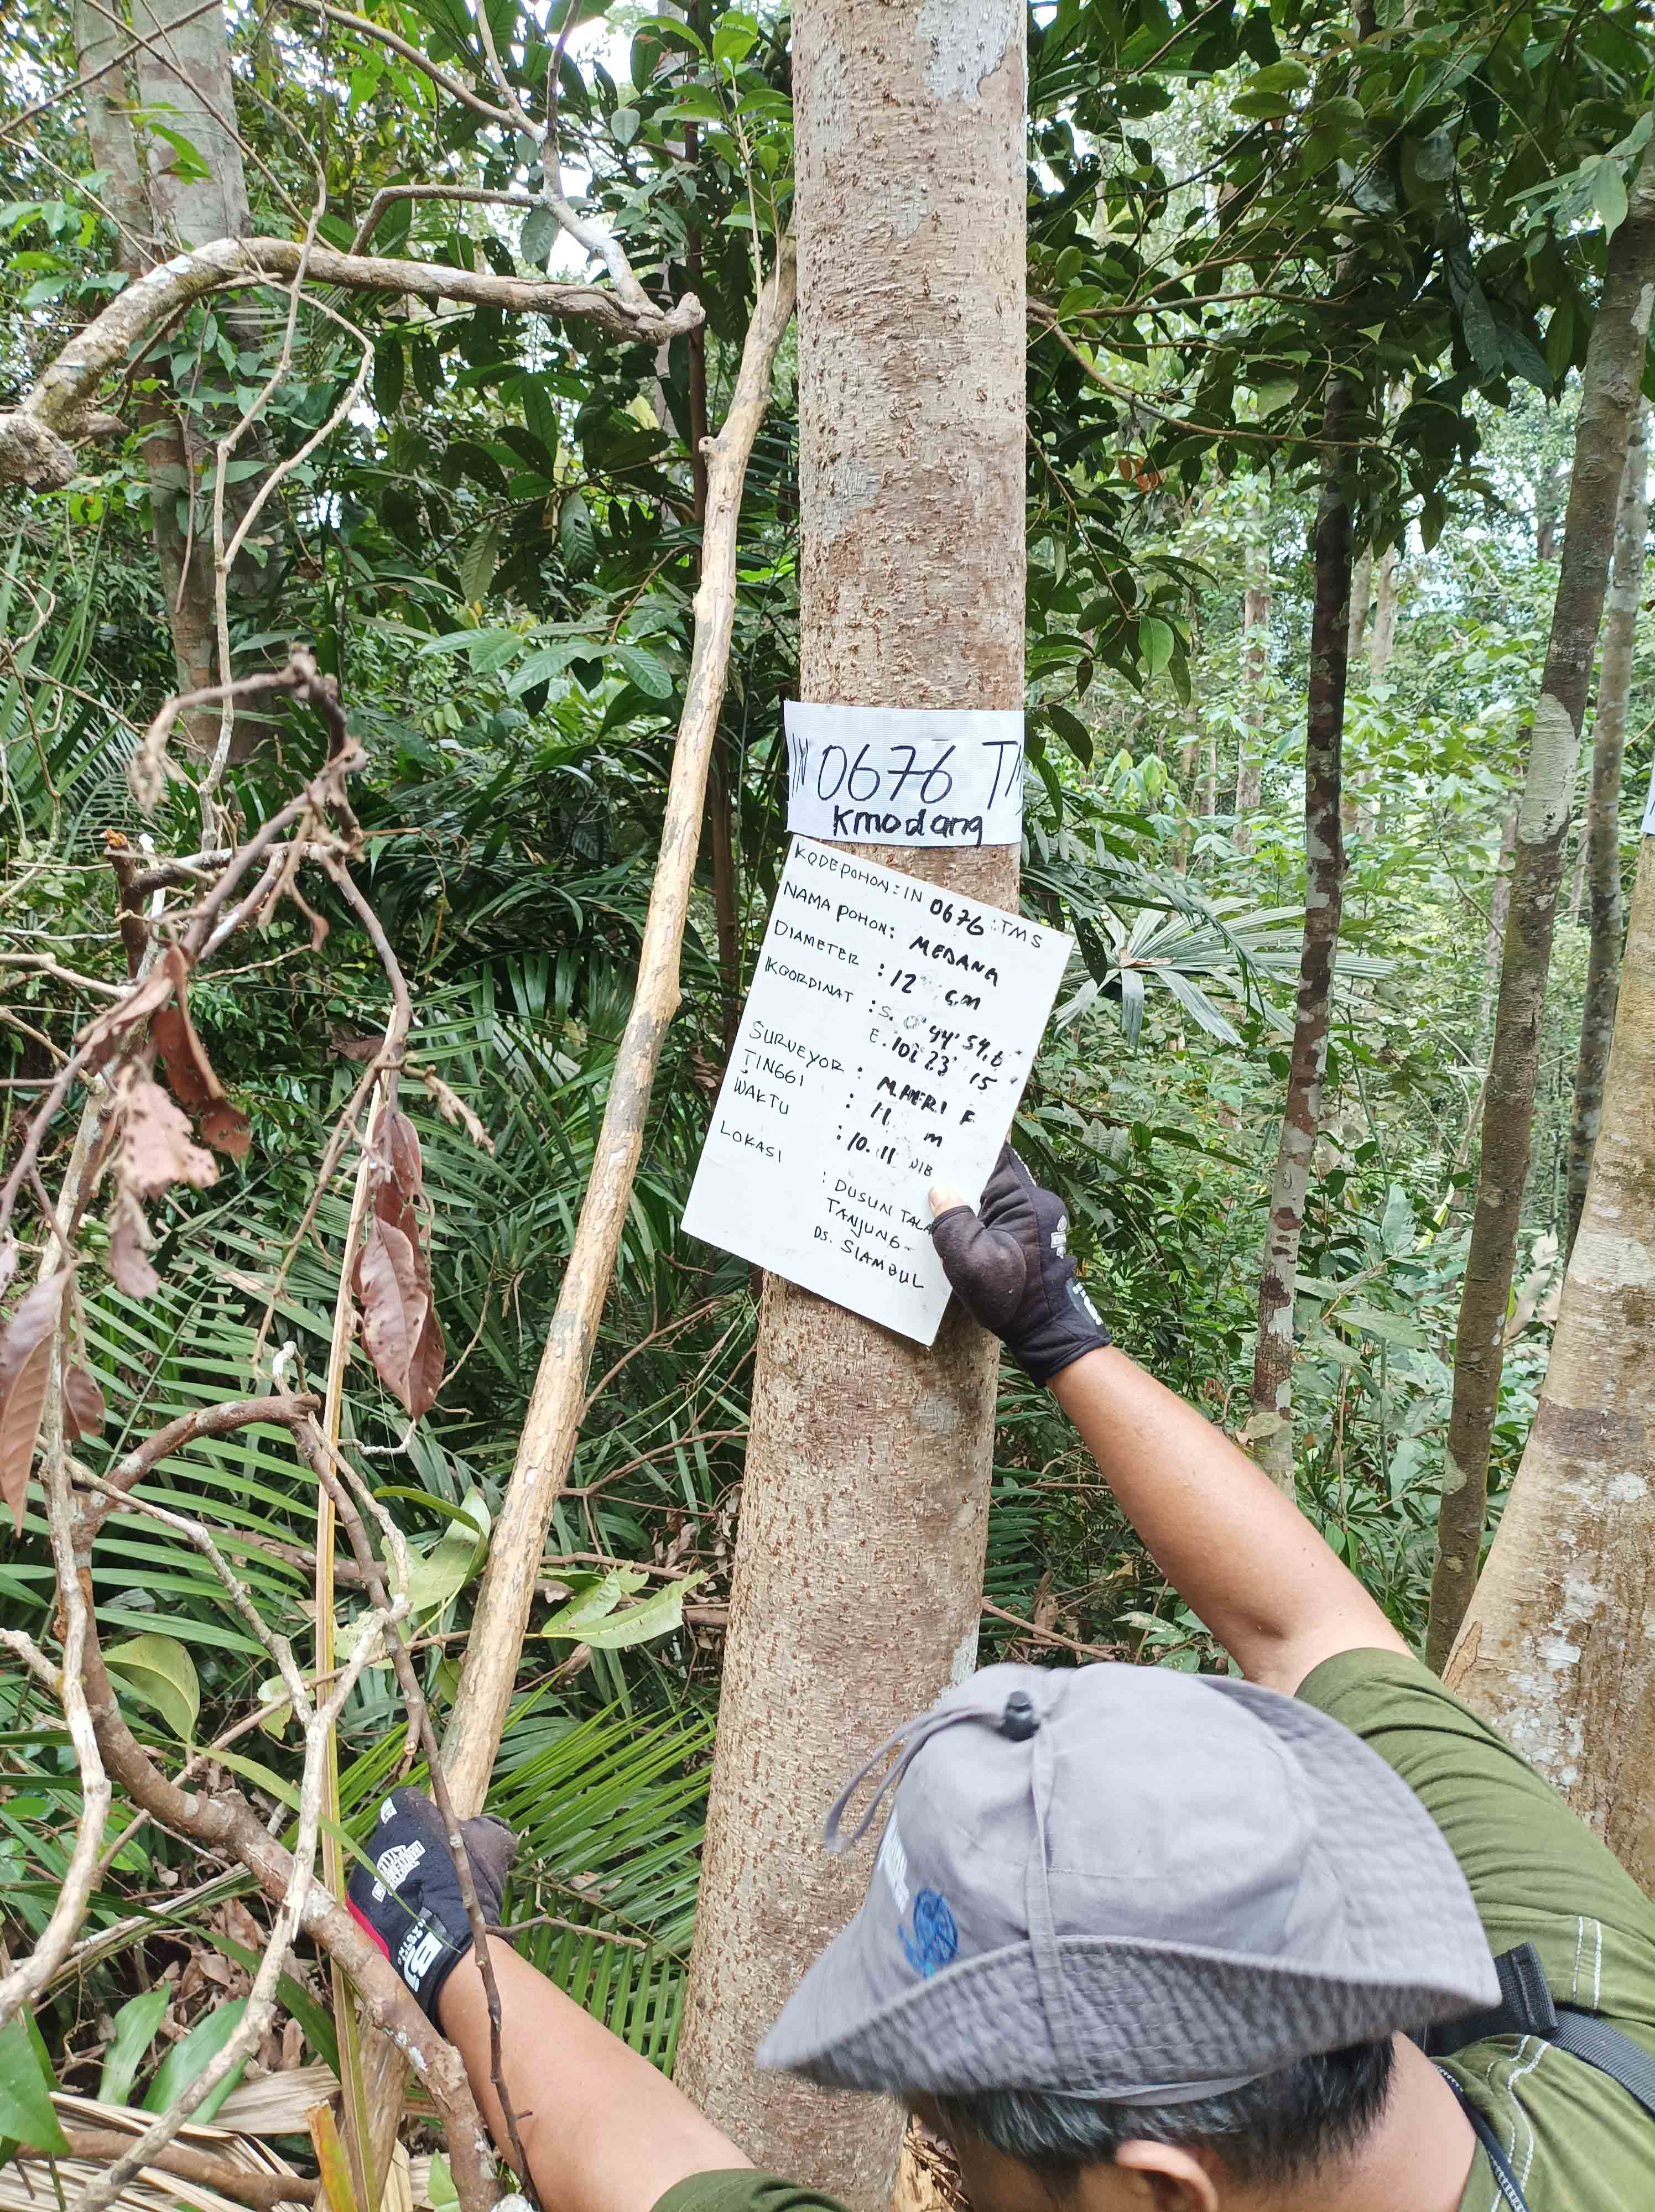 IN 0676 TM
kmodang
KODE POHON : IN 0676 : TMS
NAMA POHON : MEDANG
DIAMETER : 12 cm
KOORDINAT : S. 0° 44' 59,6"
E. 102 23' 15"
SURVEYOR : M.HERI F
TINGGI : 11 m
WAKTU : 10.11 WIB
LOKASI : DUSUN TALA
TANJUNG-
DS. SIAMBUL